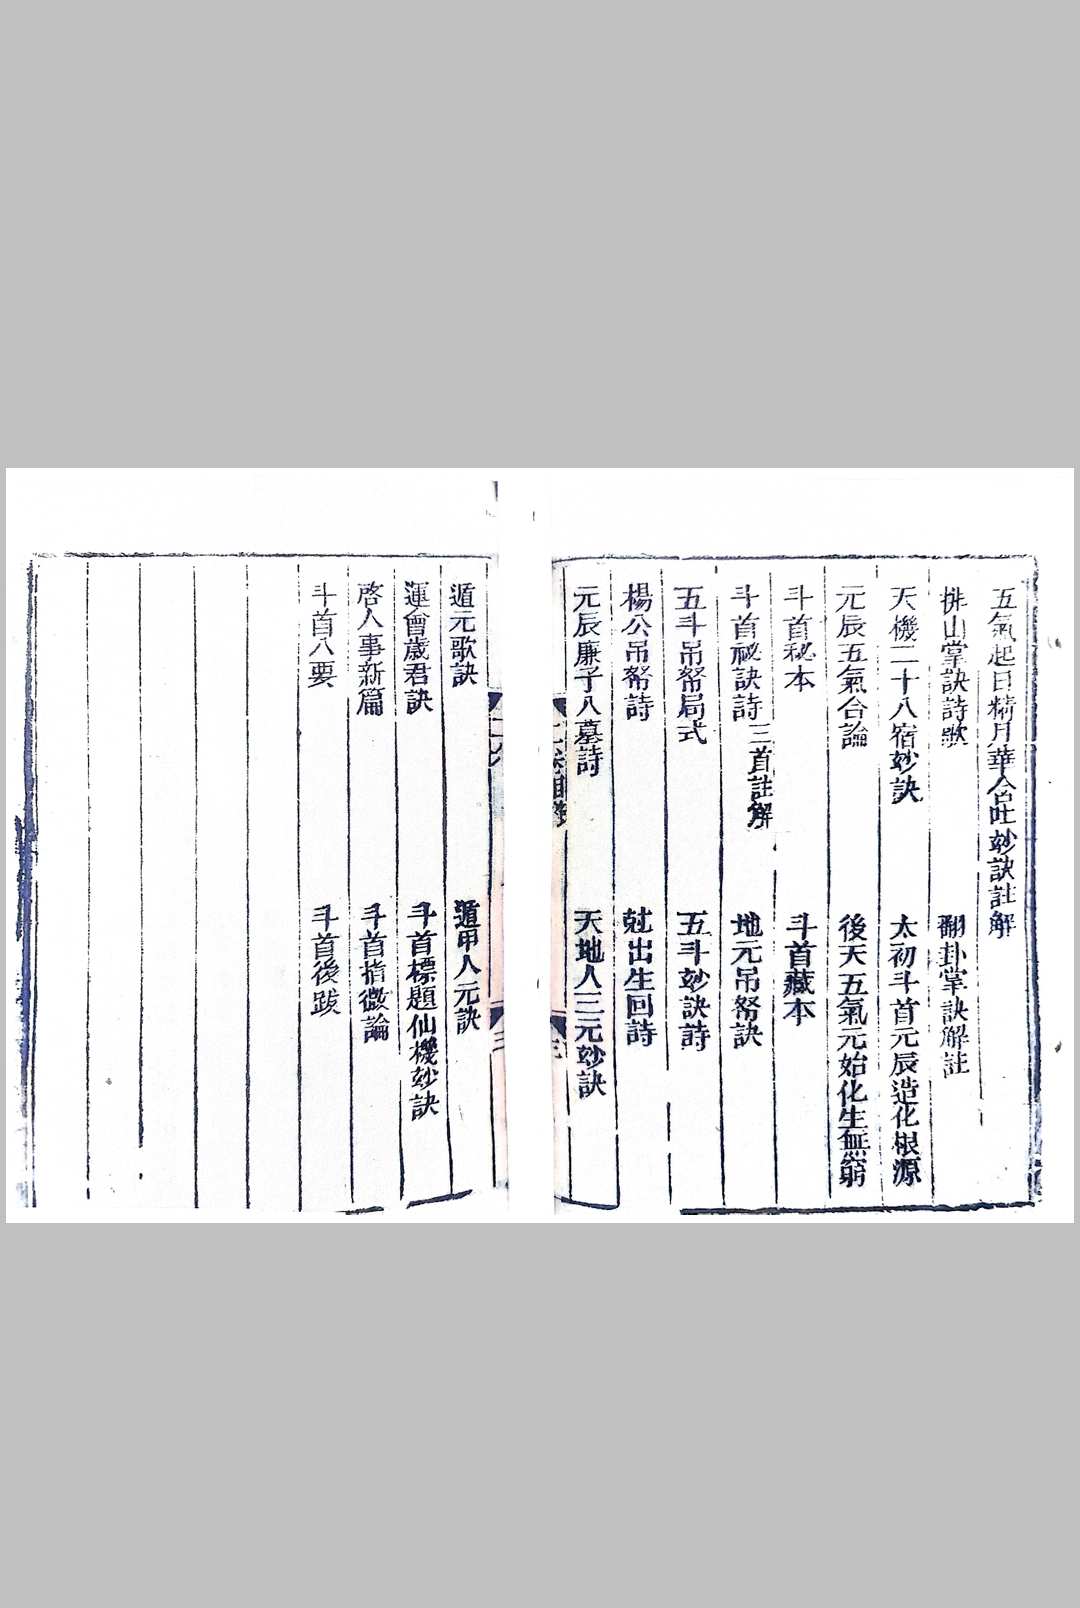 五氣起日精月華含吐玅訣註解
排山掌訣詩歌 翻卦掌訣解註
天機二十八宿玅訣 太初斗首元辰造化根源
元辰五氣合論 後天五氣元始化生無窮
斗首秘本 斗首藏本
斗首秘訣詩三首註解 地元吊帑訣
五斗吊帑局式 五斗玅訣詩
楊公吊帑詩 尅出生回詩
元辰廉子八墓詩 天地人三元玅訣
三
遁元歌訣 遁甲人元訣
運會歲君訣 斗首標題仙機玅訣
啓人事新篇 斗首指微論
斗首八要 斗首後跋